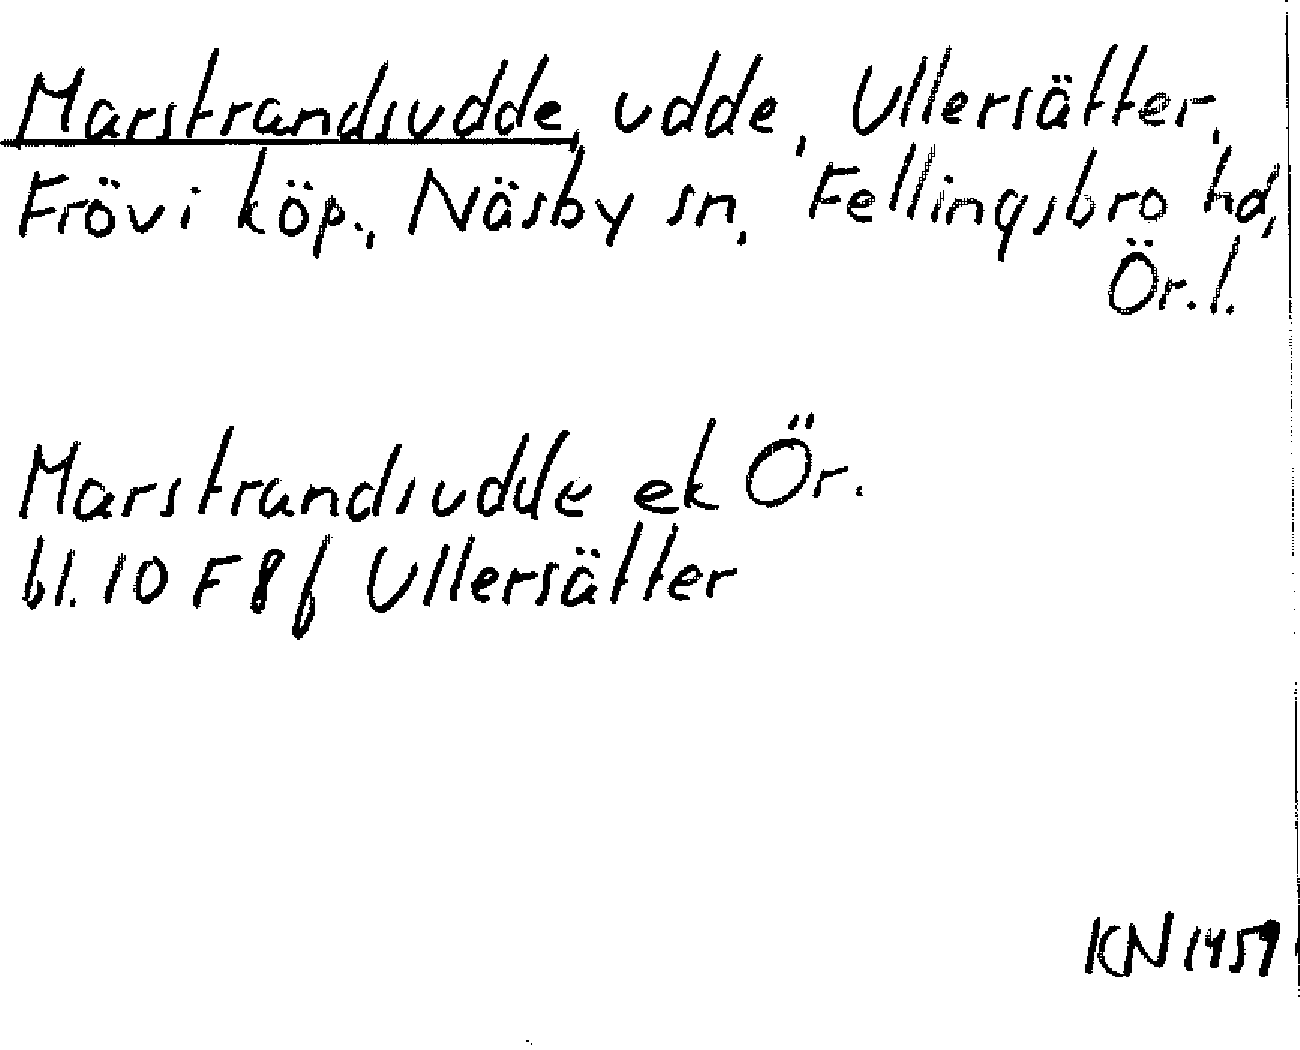 Marstrandsudde, udde, Ullersätter,
Frövi köp., Näsby sn, Fellingsbro hd,
Ör.l.
Marstrandsudde ek Ör.
bl. 10 F 8 f Ullersätter
KN 1959